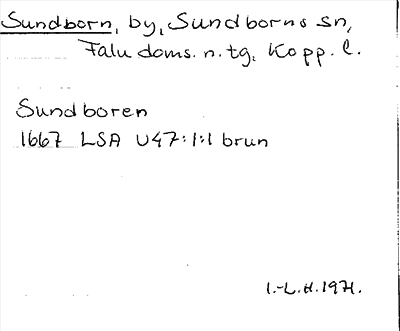 Sundborn, by, Sundborns sn,
Falu doms. n. tg, Kopp. l.
Sundboren
1667 LSA U47:1:1 brun
I.-L.H. 1971.